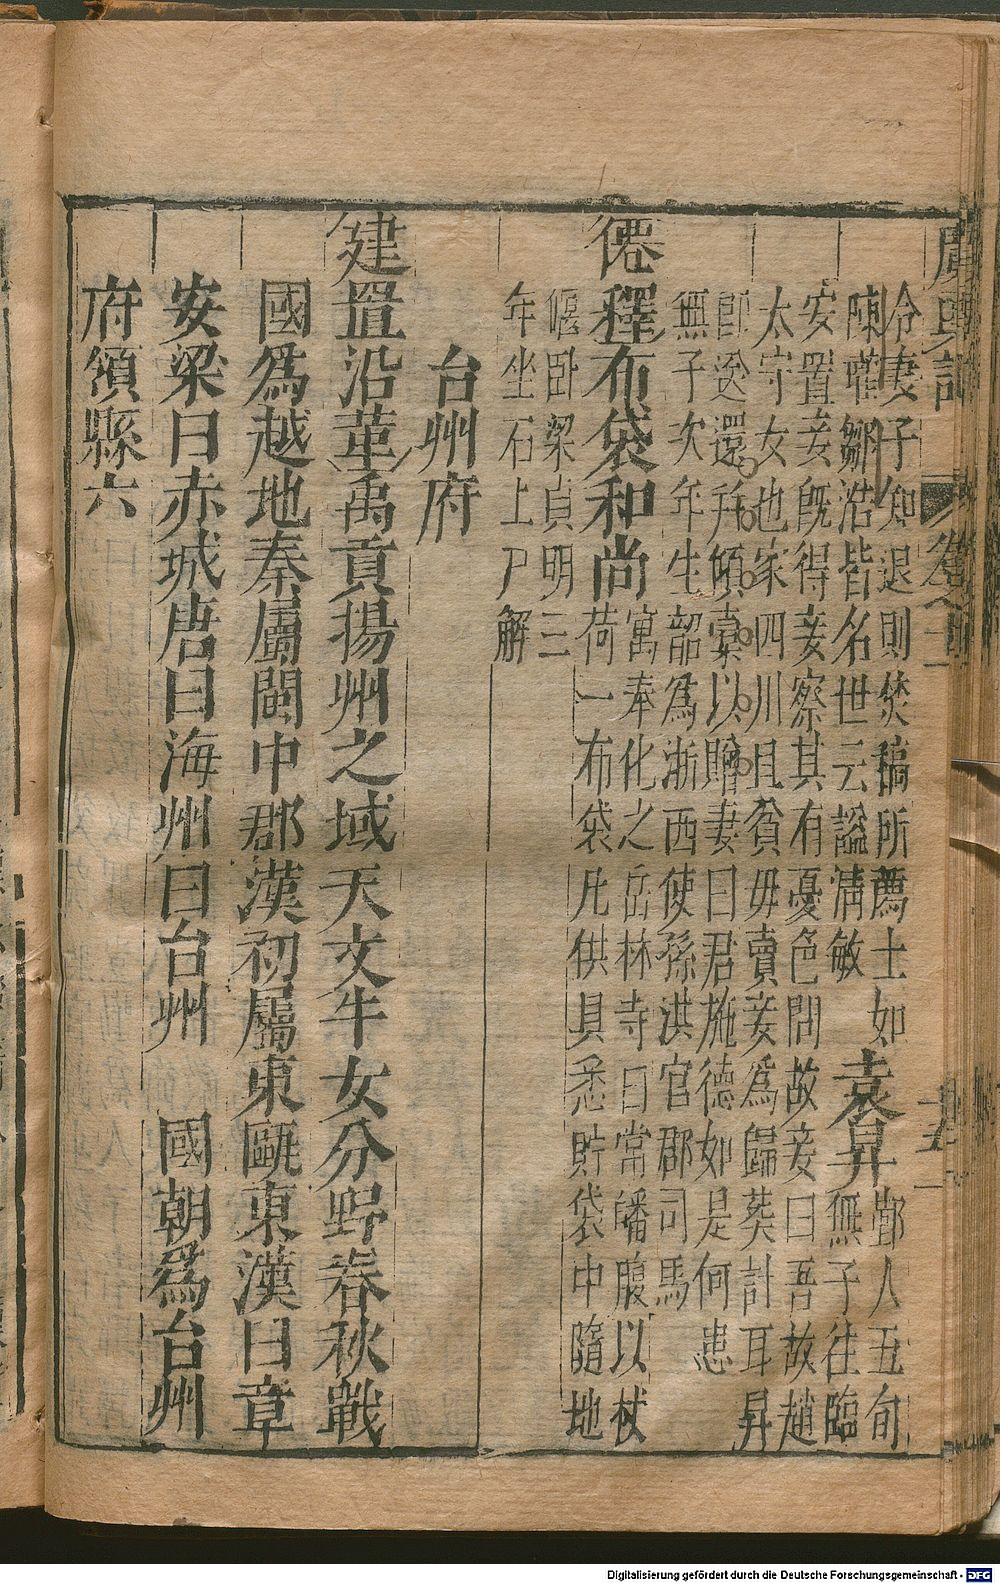 廣輿記
卷十一
十五
冷妻子知退則焚稿所薦士如
陳瓘鄒浩皆名世云謚清敏
袁昇
鄞人五旬
無子往臨
安置妾既得妾察其有憂色問故妾曰吾故趙
太守女也家四川且貧毋賣妾爲歸葬計耳昇
卽送還并傾橐以贈妻曰君施德如是何患
無子次年生韶爲浙西使孫洪官郡司馬
僊釋布袋和尚
寓奉化之岳林寺曰常皤腹以杖
荷一布袋凡供具悉貯袋中隨地
偃卧梁貞明三
年坐石上尸解
台州府
建置沿革禹貢揚州之域天文牛女分野春秋戰
國爲越地秦屬閩中郡漢初屬東甌東漢曰章
安梁曰赤城唐曰海州曰台州 國朝爲台州
府領縣六
Digitalisierung gefördert durch die Deutsche Forschungsgemeinschaft - DFG